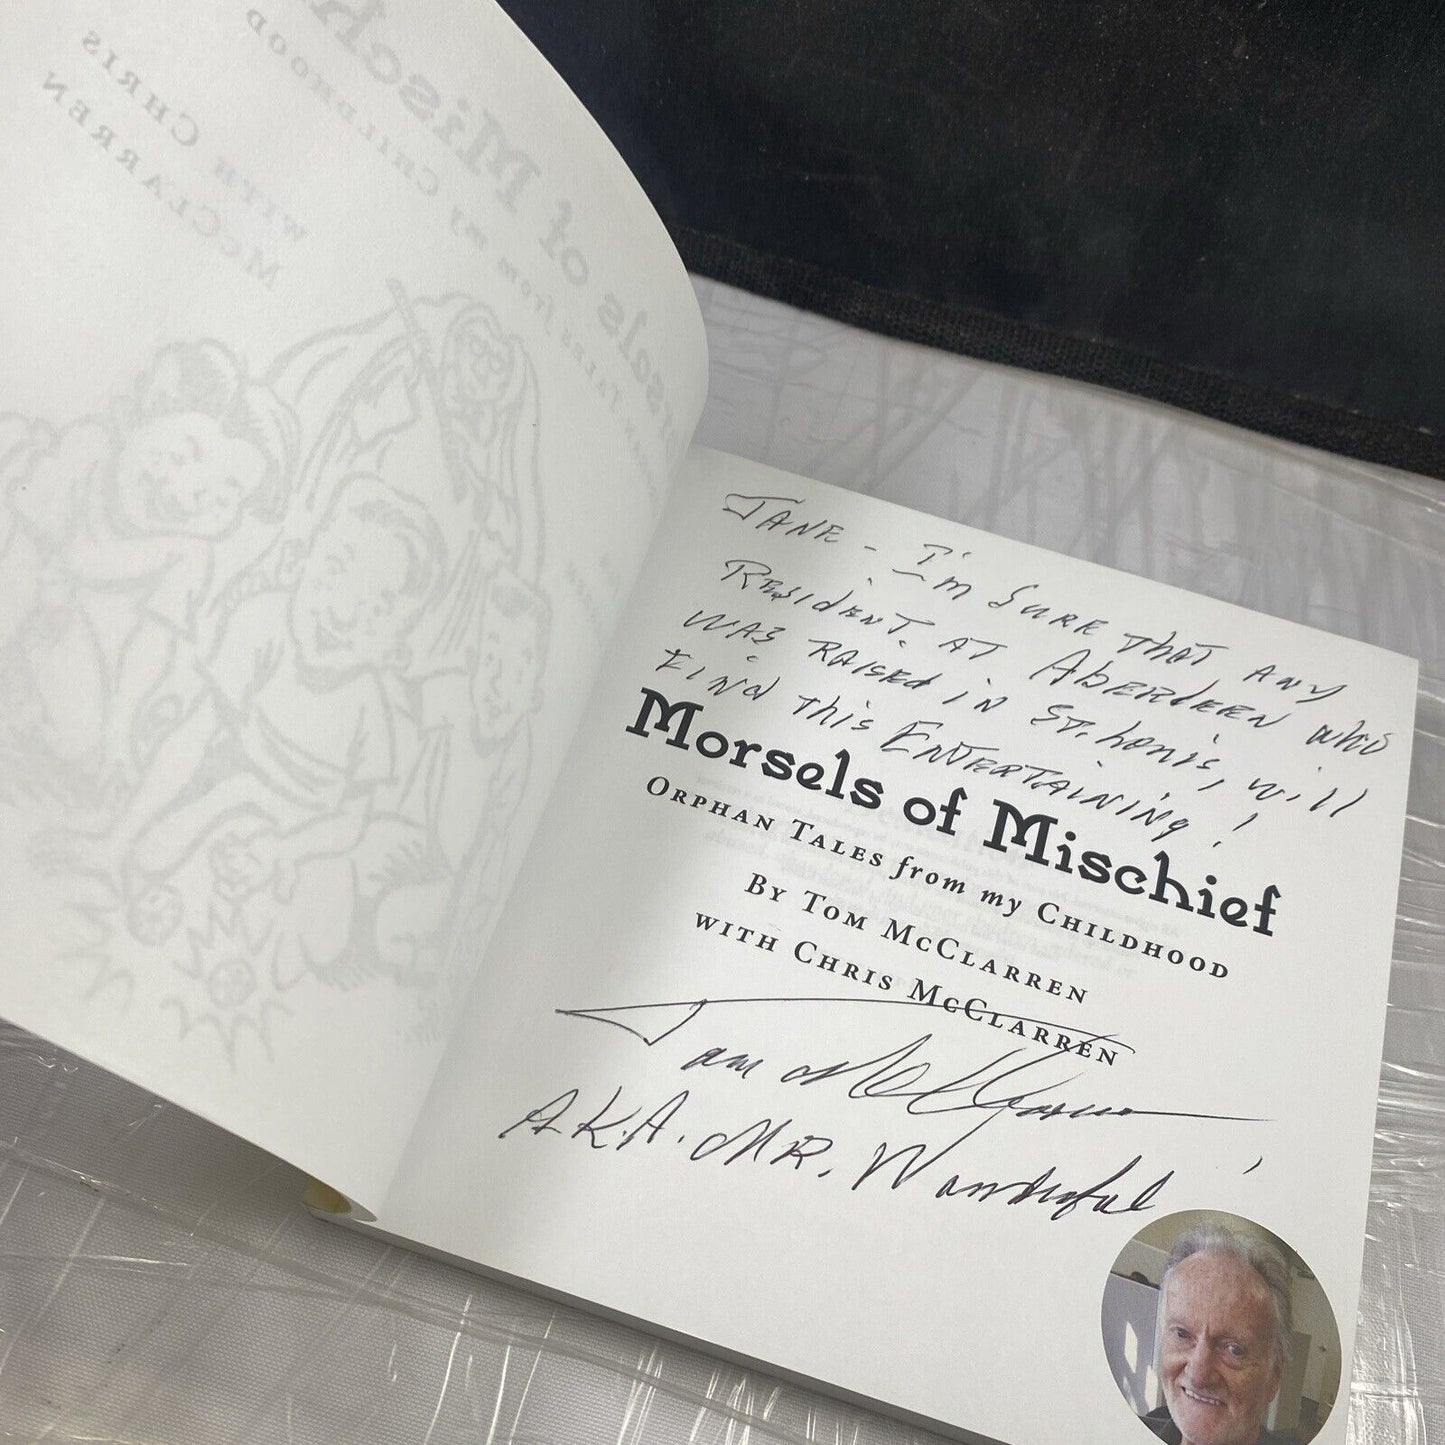 JANE - I'm SURE THAT ANY
RESIDENT AT ABERDEEN WHO
WAS RAISED IN ST. Louis, will
FIND THIS ENTERTAINING!
Morsels of Mischief
ORPHAN TALES from my CHILDHOOD
BY TOM MCCLARREN
WITH CHRIS MCCLARREN
Tom McClarren
A.K.A. MR. Wonderful